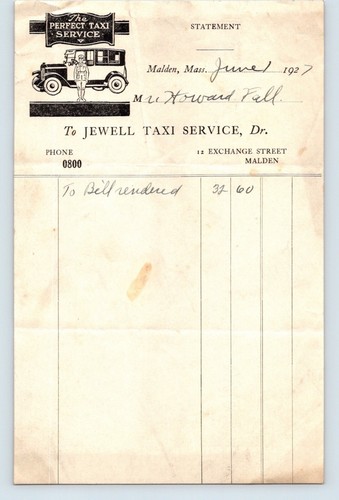 The
PERFECT TAXI
SERVICE
STATEMENT
Malden, Mass. June 1 1927
Mr. Howard Fall.
To JEWELL TAXI SERVICE, Dr.
PHONE
0800
12 EXCHANGE STREET
MALDEN
To Bill rendered 32 60